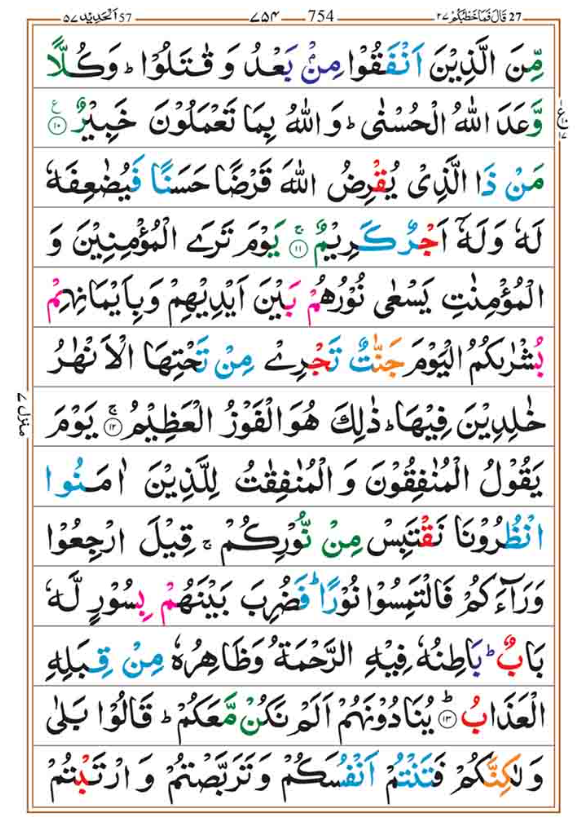 27 قَالَ فَمَا خَطْبُكُمْ ٢٧ 754 ٧٥٤ 57 اَلْحَدِيْد ٥٧
مِّنَ الَّذِيْنَ اَنْفَقُوْا مِنْۢ بَعْدُ وَ قٰتَلُوْا ؕ وَ كُلًّا
وَّعَدَ اللّٰهُ الْحُسْنٰى ؕ وَ اللّٰهُ بِمَا تَعْمَلُوْنَ خَبِيْرٌ ﴿۱۰﴾ ع
مَنْ ذَا الَّذِىْ يُقْرِضُ اللّٰهَ قَرْضًا حَسَنًا فَيُضٰعِفَهٗ
لَهٗ وَ لَهٗۤ اَجْرٌ كَرِيْمٌ ﴿۱۱﴾ۚ يَوْمَ تَرَى الْمُؤْمِنِيْنَ وَ
الْمُؤْمِنٰتِ يَسْعٰى نُوْرُهُمْ بَيْنَ اَيْدِيْهِمْ وَ بِاَيْمَانِهِمْ
بُشْرٰىكُمُ الْيَوْمَ جَنّٰتٌ تَجْرِىْ مِنْ تَحْتِهَا الْاَنْهٰرُ
خٰلِدِيْنَ فِيْهَا ؕ ذٰلِكَ هُوَ الْفَوْزُ الْعَظِيْمُ ﴿۱۲﴾ۚ يَوْمَ
يَقُوْلُ الْمُنٰفِقُوْنَ وَ الْمُنٰفِقٰتُ لِلَّذِيْنَ اٰمَنُوا
انْظُرُوْنَا نَقْتَبِسْ مِنْ نُّوْرِكُمْ ۚ قِيْلَ ارْجِعُوْا
وَرَآءَكُمْ فَالْتَمِسُوْا نُوْرًا ؕ فَضُرِبَ بَيْنَهُمْ بِسُوْرٍ لَّهٗ
بَابٌ ؕ بَاطِنُهٗ فِيْهِ الرَّحْمَةُ وَ ظَاهِرُهٗ مِنْ قِبَلِهِ
الْعَذَابُ ﴿۱۳﴾ؕ يُنَادُوْنَهُمْ اَلَمْ نَكُنْ مَّعَكُمْ ؕ قَالُوْا بَلٰى
وَ لٰكِنَّكُمْ فَتَنْتُمْ اَنْفُسَكُمْ وَ تَرَبَّصْتُمْ وَ ارْتَبْتُمْ
منزل ٧